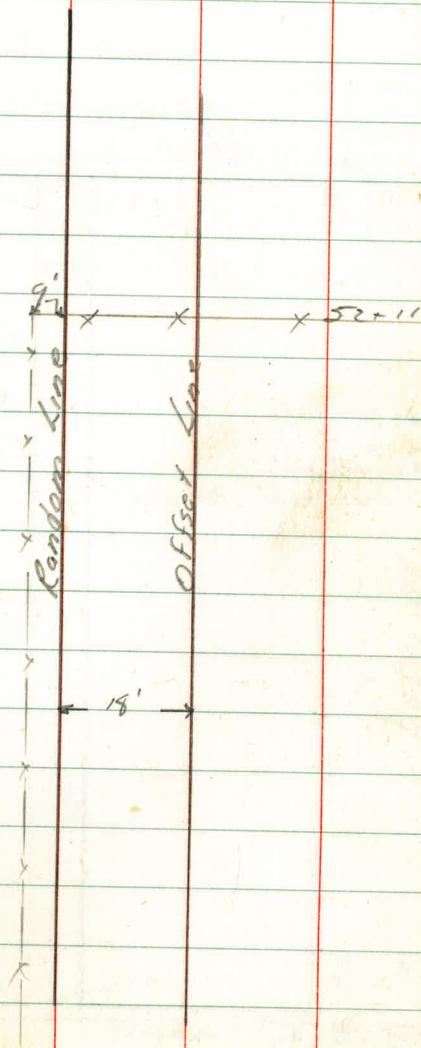 52+11
Random Line
Offset Line
18'